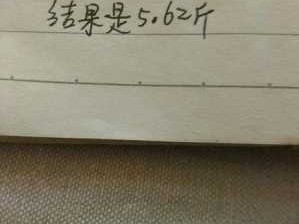 结果是5.62斤